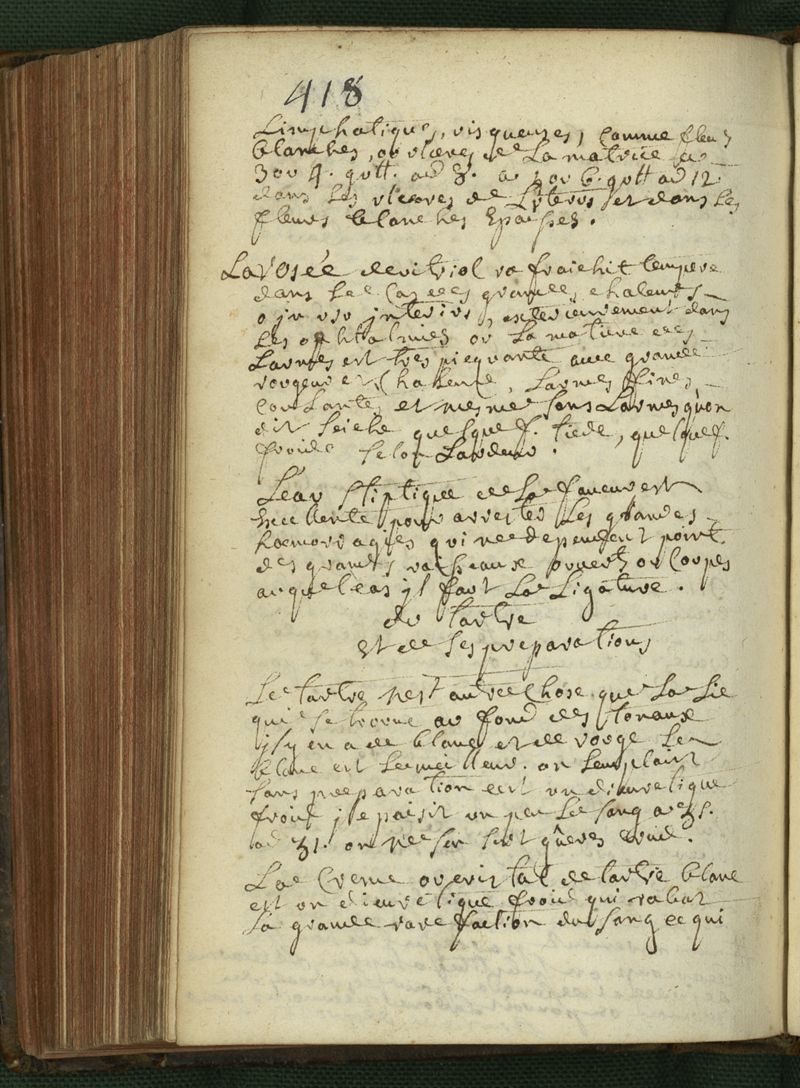 418
Limphatiques, visqueuses, comme fleurs
blanches, ou vlceres de La matrice a
3 ou 4. gutt. ad 8. a 5 ou 6. gutt ad 12
dans les vlceres de Lvterus et dans les
fleurs blanches Epaisses.
La rosée de vitriol rafraichit tempere
dans Le Cas des grandes chaleurs
en vsu interius, exterieurement dans
Les ophtalmies ou La matiere des
Larmes est tres picquante auec grande
rougeur et Chaleur, Larmes fines,
Coulantes, et mesme sans Larmes quon
dit seiche quelquef. tiede, quelquef.
froide selon Lardeur.
Leau stiptique de La faueur est
Excellente pour arrester Les grandes
hœmorragies qui ne dependent point
des grands vaisseaux ouuerts ou Coupes
auquel cas jl faut La Ligature.
du tartre
Et de ses preparations
Le tartre nest autre Chose que La Lie
qui se trouue au fond des tonaux
jl y en a de blanc et de rouge Le
blanc est Le meilleur. on Lemploit
sans preparation cest un diuretique
froid jl epaisit un peu Le sang a ʒs.
ad ʒ1. on ne sen sert guères crud.
La Creme ou cristal de tartre blanc
est un diuretique froid qui rabat
La grande rarefaction du sang ce qui